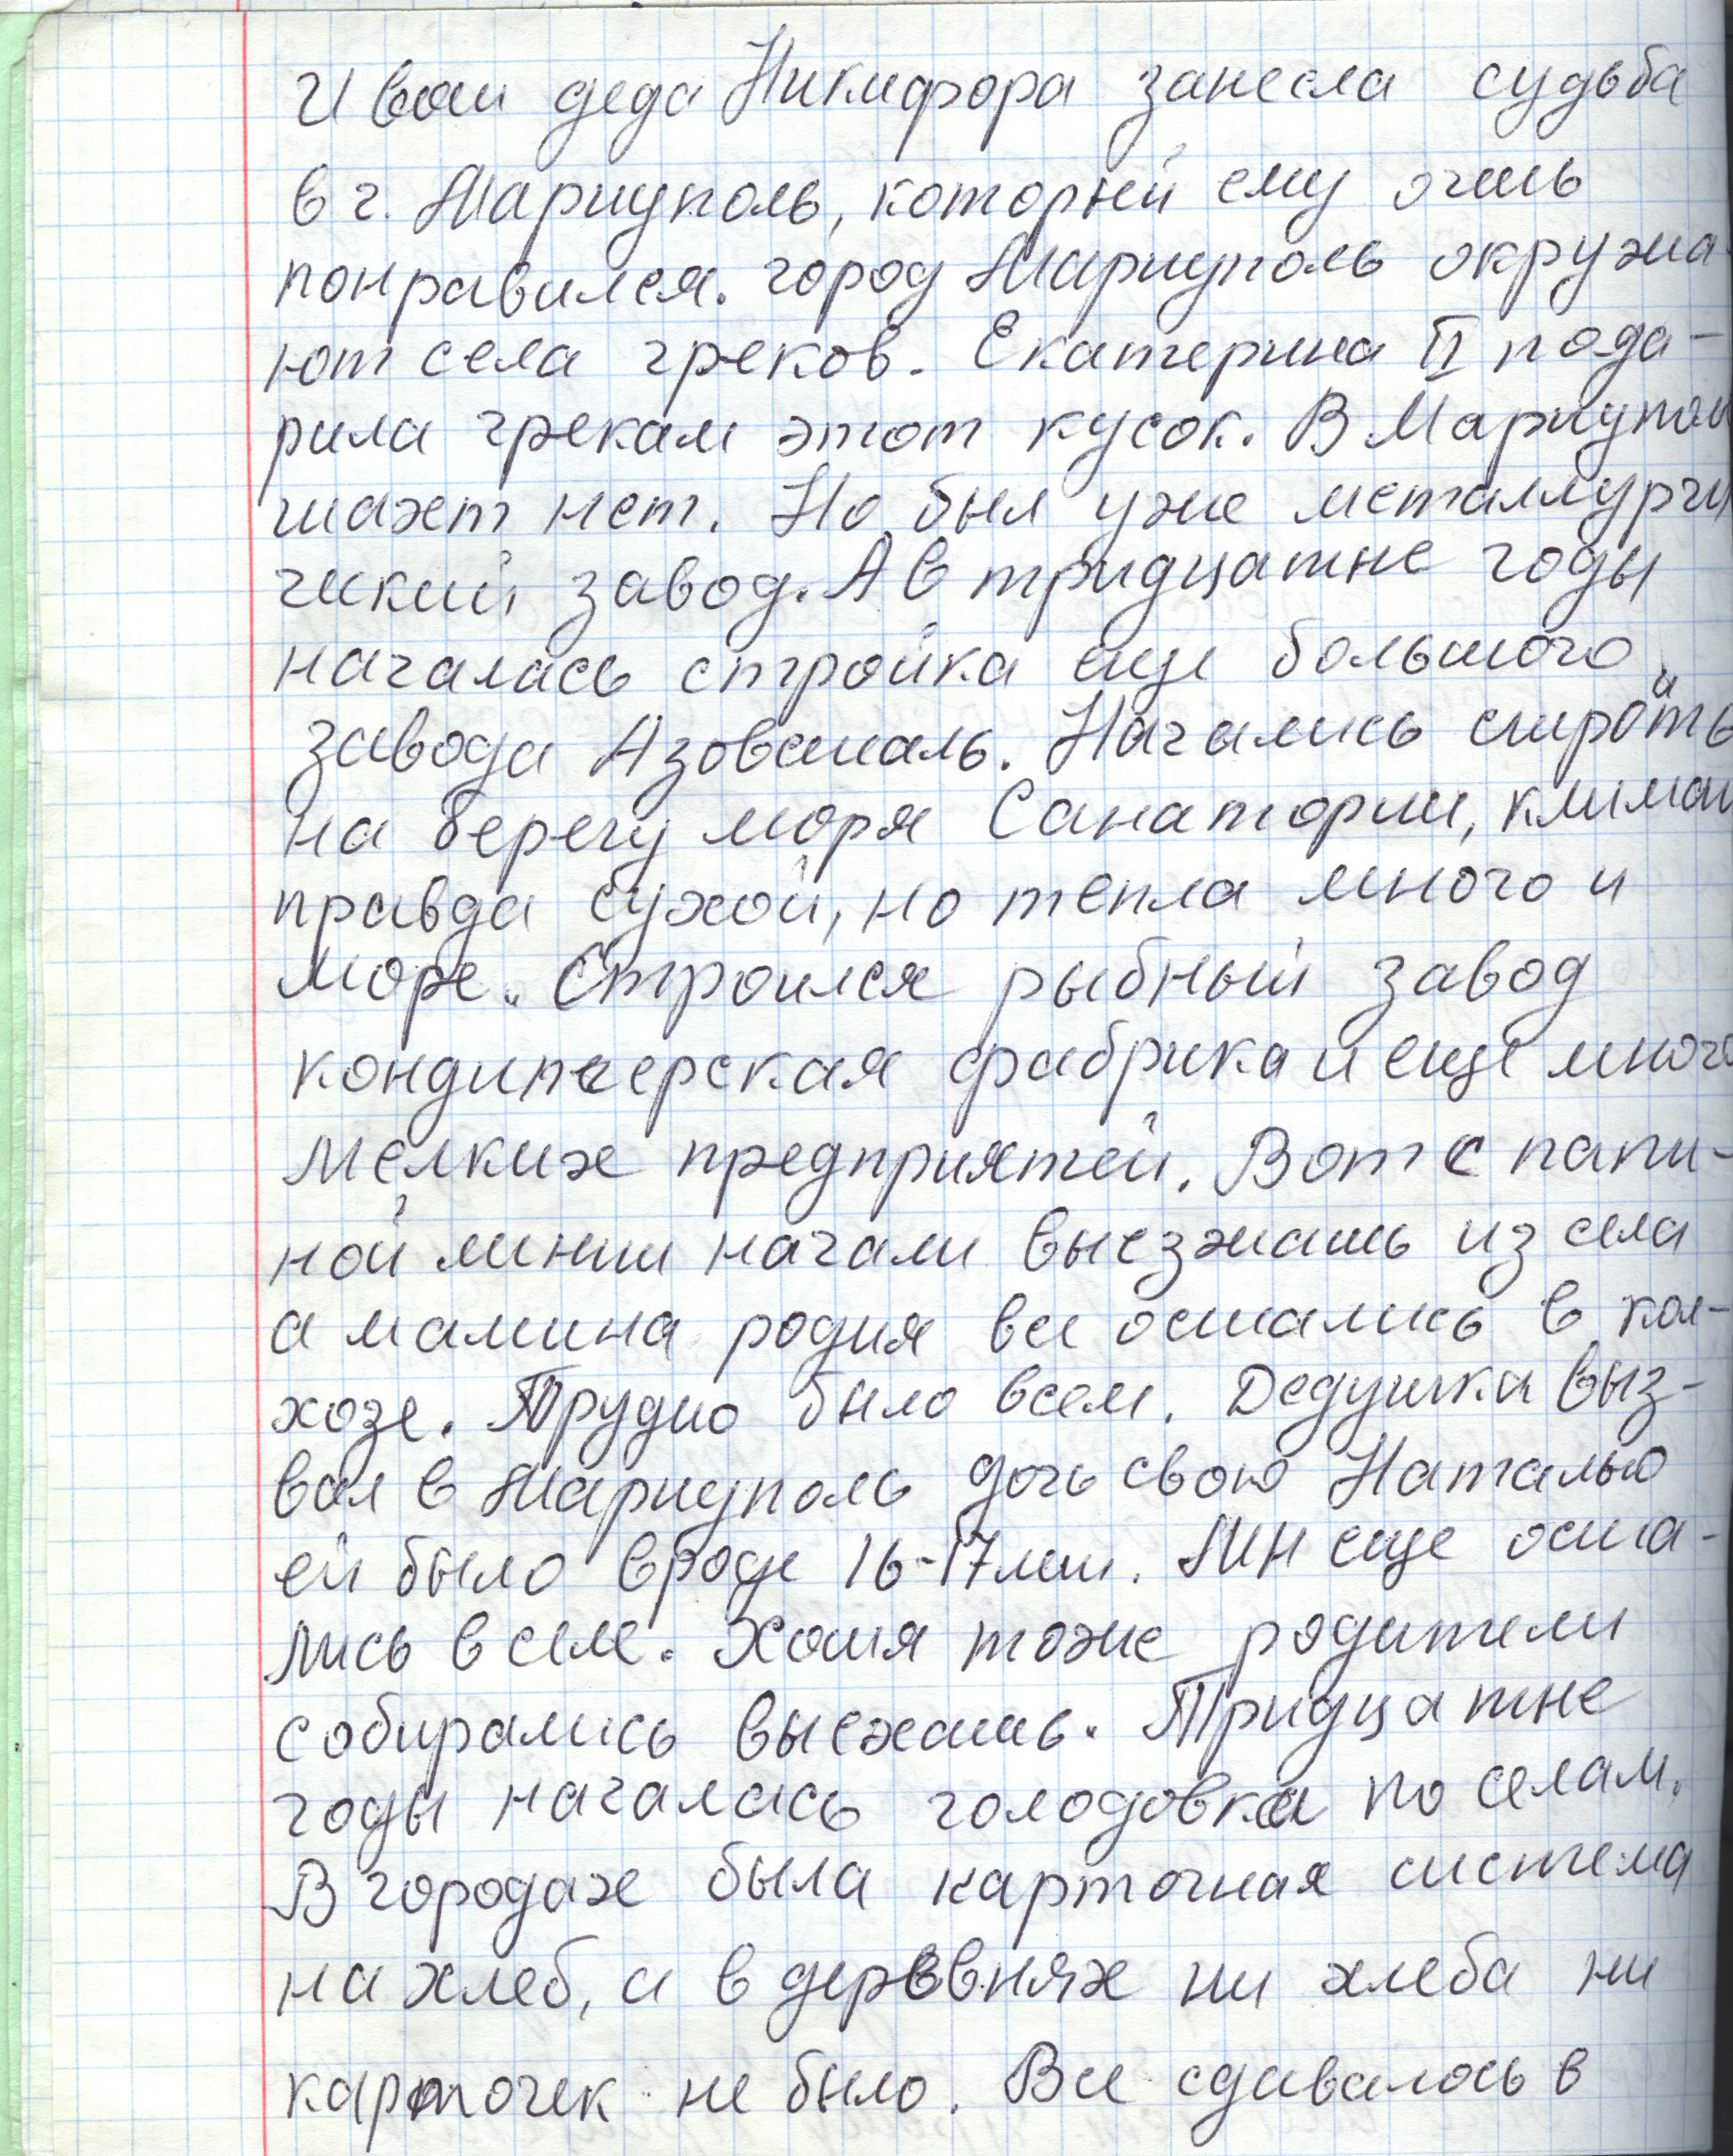 И вот деда Никифора занесла судьба
в г. Мариуполь, который ему очень
понравился. город Мариуполь окружа-
ют села греков. Екатерина II пода-
рила грекам этот кусок. В Мариупол
шахт нет. Но был уже металлурги
ческий завод. А в тридцатые годы
началась стройка еще большого
завода Азовсталь. Начались строить
на берегу моря Санатории, климат
правда сухой, но тепла много и
море. Строился рыбный завод
кондитерская фабрика и еще много
мелких предприятей. Вот с папи-
ной линии начали выезжать из села
а мамина родия все остались в кол-
хозе. Трудно было всем. Дедушка выз-
вал в Мариуполь дочь свою Наталью
ей было вроде 16-17 лет. Мы еще оста-
лись в селе. Хотя тоже родители
собирались выехать. Тридцатые
годы началась голодовка по селам.
В городах была карточная система
на хлеб, а в деревнях ни хлеба ни
карточек не было. Все сдавалось в